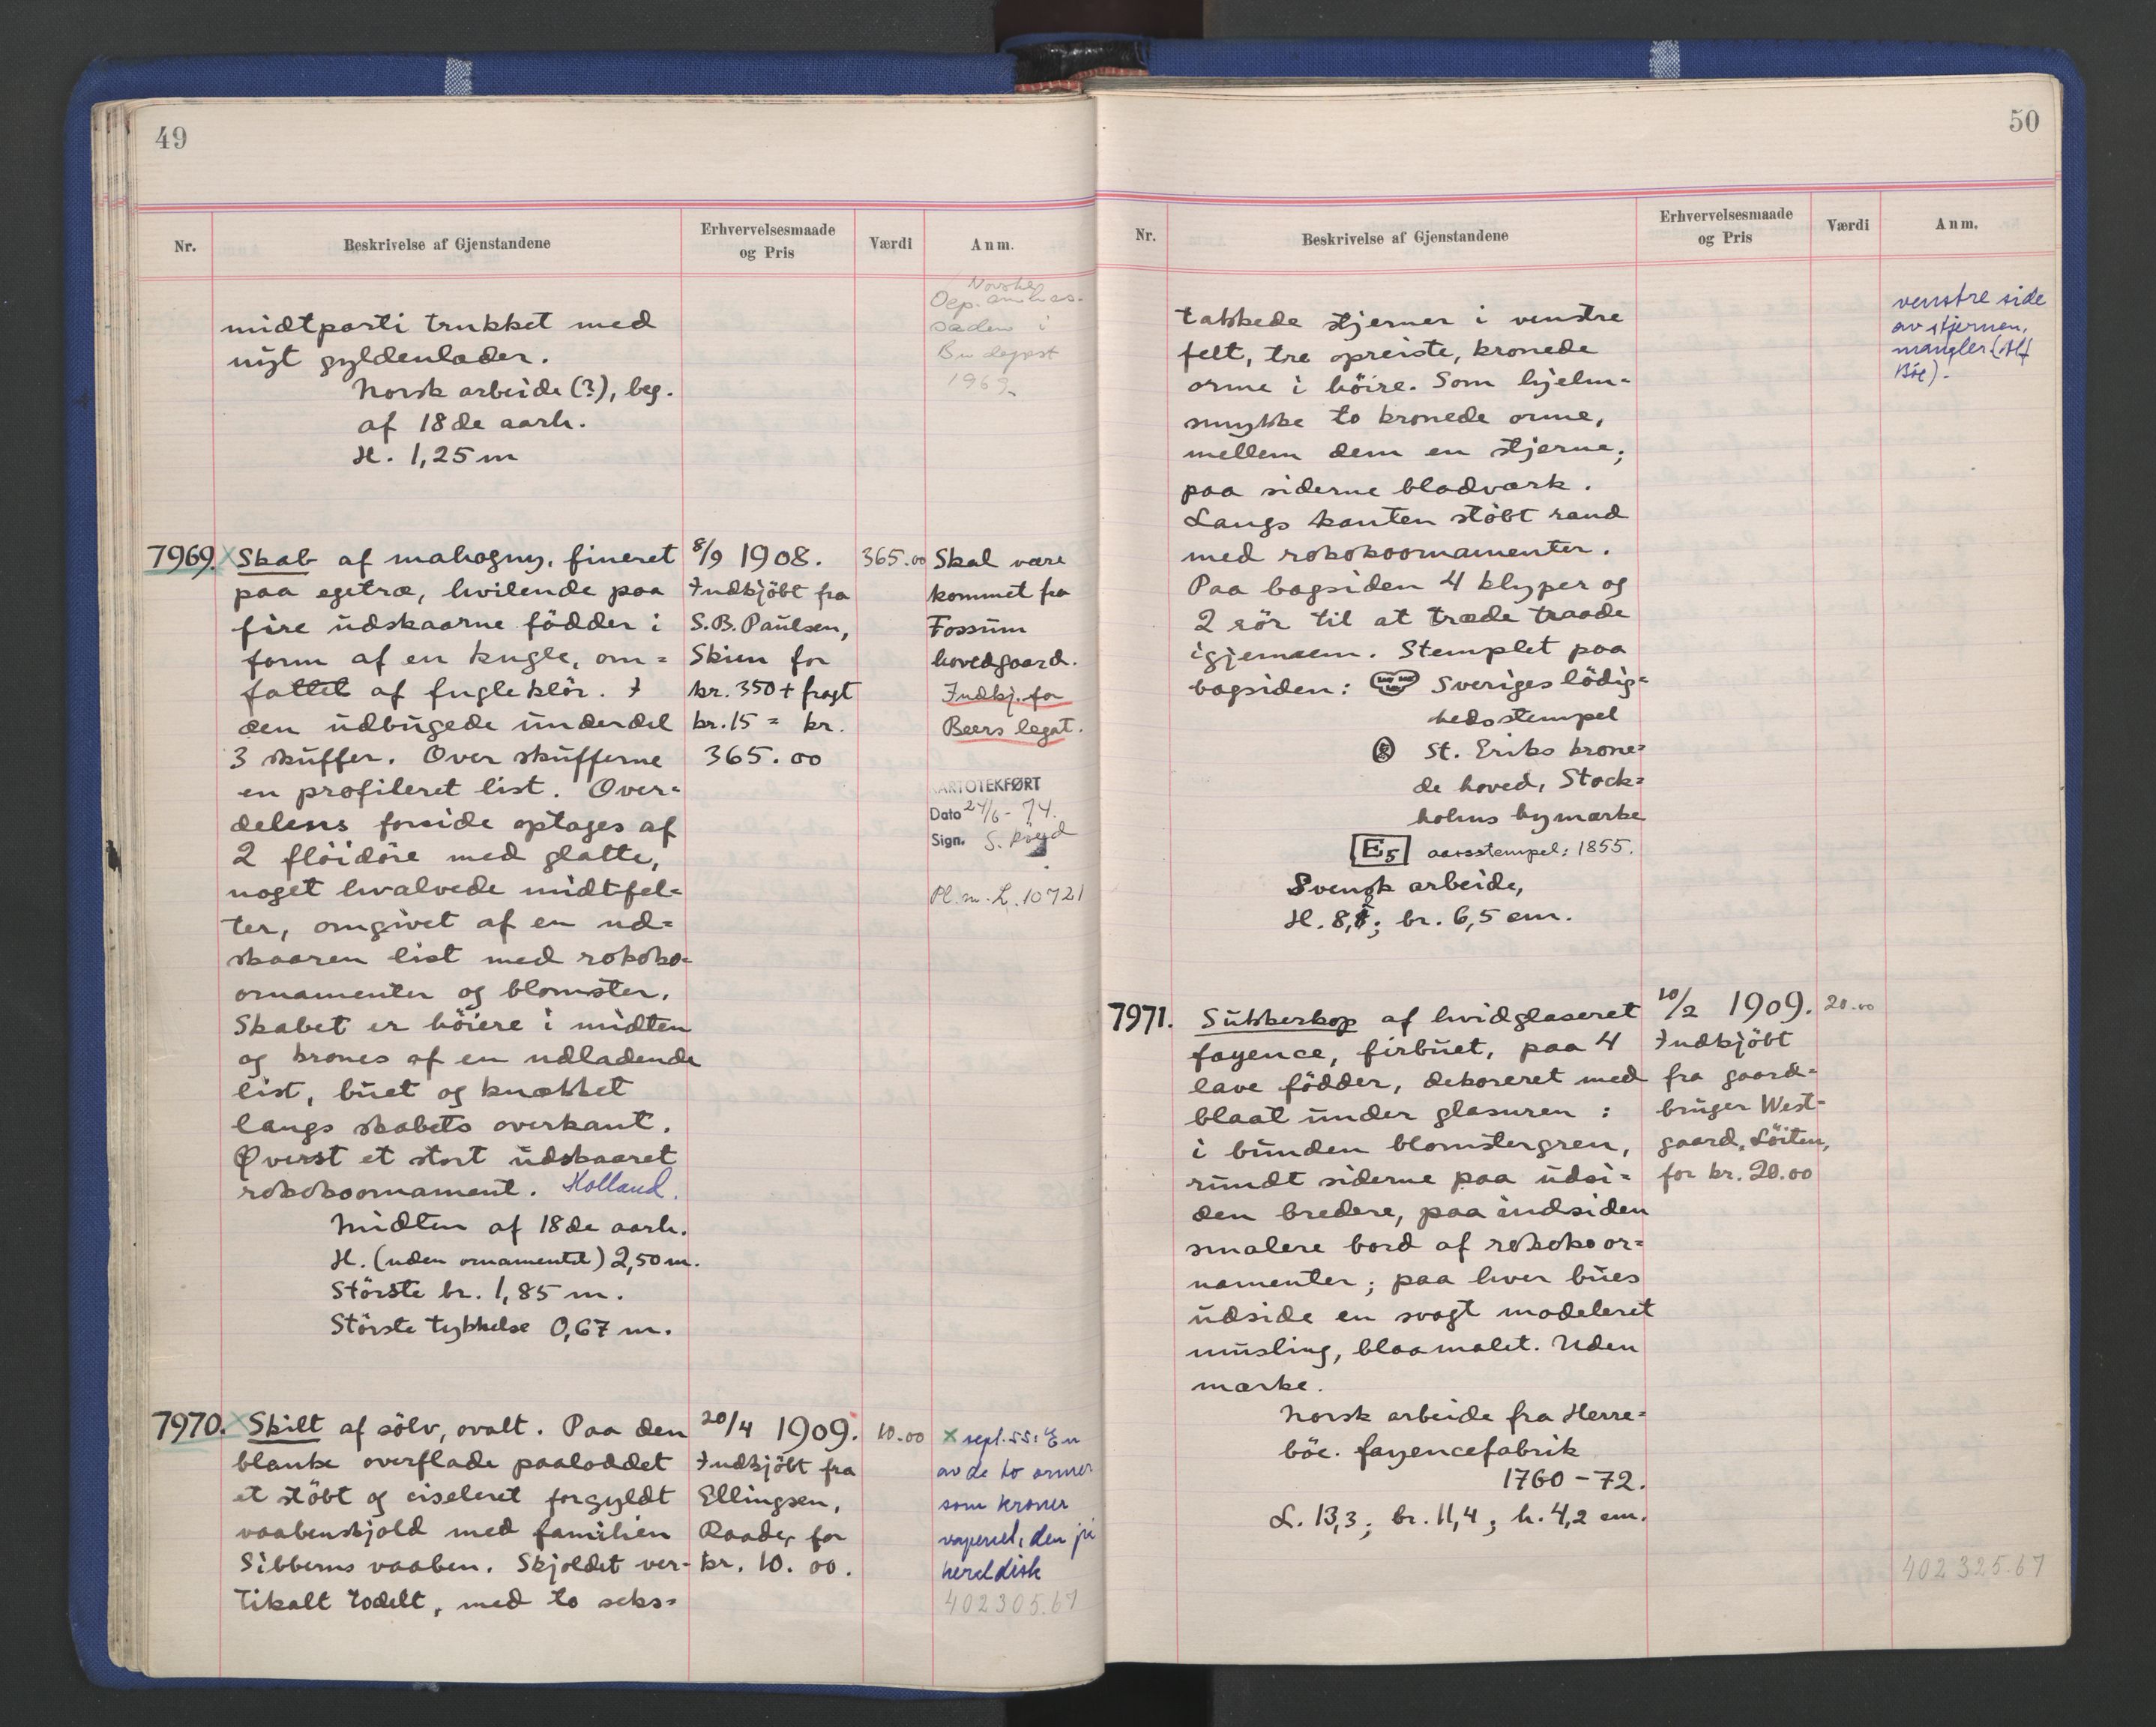 49
Nr.
Beskrivelse af Gjenstandene
Erhvervelsesmaade
og Pris
Værdi
Anm.
midtparti trukket med
nyt gyldenlæder.
Norsk arbeide (?), beg.
af 18de aarh.
H. 1,25 m
Norske
Dep. ambas-
saden i
Budapest
1969
7969.
Skab af mahogny, fineret
paa egetræ, hvilende paa
fire udskaarne födder i
form af en kugle, om=
fattet af fugleklör. I
den udbugede underdel
3 skuffer. Over skufferne
en profileret list. Over=
delens forside optages af
2 flöidöre med glatte,
noget hvalvede midtfel=
ter, omgivet af en ud=
skaaren list med rokoko=
ornamenter og blomster.
Skabet er höiere i midten
og krones af en udladende
list, buet og knækket
langs skabets overkant.
Øverst et stort udskaaret
rokokoornament. Holland.
Midten af 18de aarh.
H. (uden ornamentet) 2,50 m.
Störste br. 1,85 m.
Störste tykkelse 0,67 m.
8/9 1908.
Indkjöbt fra
S.B. Paulsen,
Skien for
kr. 350 + fragt
kr. 15 = kr.
365.00
365.00
Skal være
kommet fra
Fossum
hovedgaard.
Indkj. for
Beers legat.
KARTOTEKFØRT
Dato 24/6 - 74.
Sign. S.
Pl. m. L. 10721
7970.
X Skilt af sölv, ovalt. Paa den
blanke overflade paaloddet
et stöbt og ciseleret forgyldt
vaabenskjold med familien
Sibberns vaaben. Skjoldet ver=
tikalt todelt, med to seks=
20/4 1909.
Indkjöbt fra
Ellingsen,
Raade, for
kr. 10.00.
10.00
X sept. 55: En
av de to ormer
som kroner
våpenet, den på
heraldisk
402305.67
50
Nr.
Beskrivelse af Gjenstandene
Erhvervelsesmaade
og Pris
Værdi
Anm.
takkede stjerner i venstre
felt, tre opreiste, kronede
orme i höire. Som hjelm=
smykke to kronede orme,
mellem dem en stjerne;
paa siderne bladværk.
Langs kanten stöbt rand
med rokokoornamenter.
Paa bagsiden 4 klyper og
2 rör til at træde traade
igjennem. Stemplet paa
bagsiden: Sveriges lödig=
hedsstempel
St. Eriks krone=
de hoved, Stock=
holms bymærke
E5 aarsstempel: 1855.
Svensk arbeide,
H. 8, ; br. 6,5 cm.
venstre side
av stjernen,
mangler. (Alf
Bøe).
7971.
Sukkerkop af hvidglaseret
fayence, firbuet, paa 4
lave födder, dekoreret med
blaat under glasuren:
i bunden blomstergren,
rundt siderne paa udsi=
den bredere, paa indsiden
smalere bord af rokokoor=
namenter; paa hver bues
udside en svagt modeleret
musling, blaamalet. Uden
mærke.
Norsk arbeide fra Herre=
böe. fayencefabrik
1760-72.
L. 13,3; br. 11,4; h. 4,2 cm.
10/2 1909.
Indkjöbt
fra gaard=
bruger West=
gaard, Löiten,
for kr. 20.00
20.00
402325.67